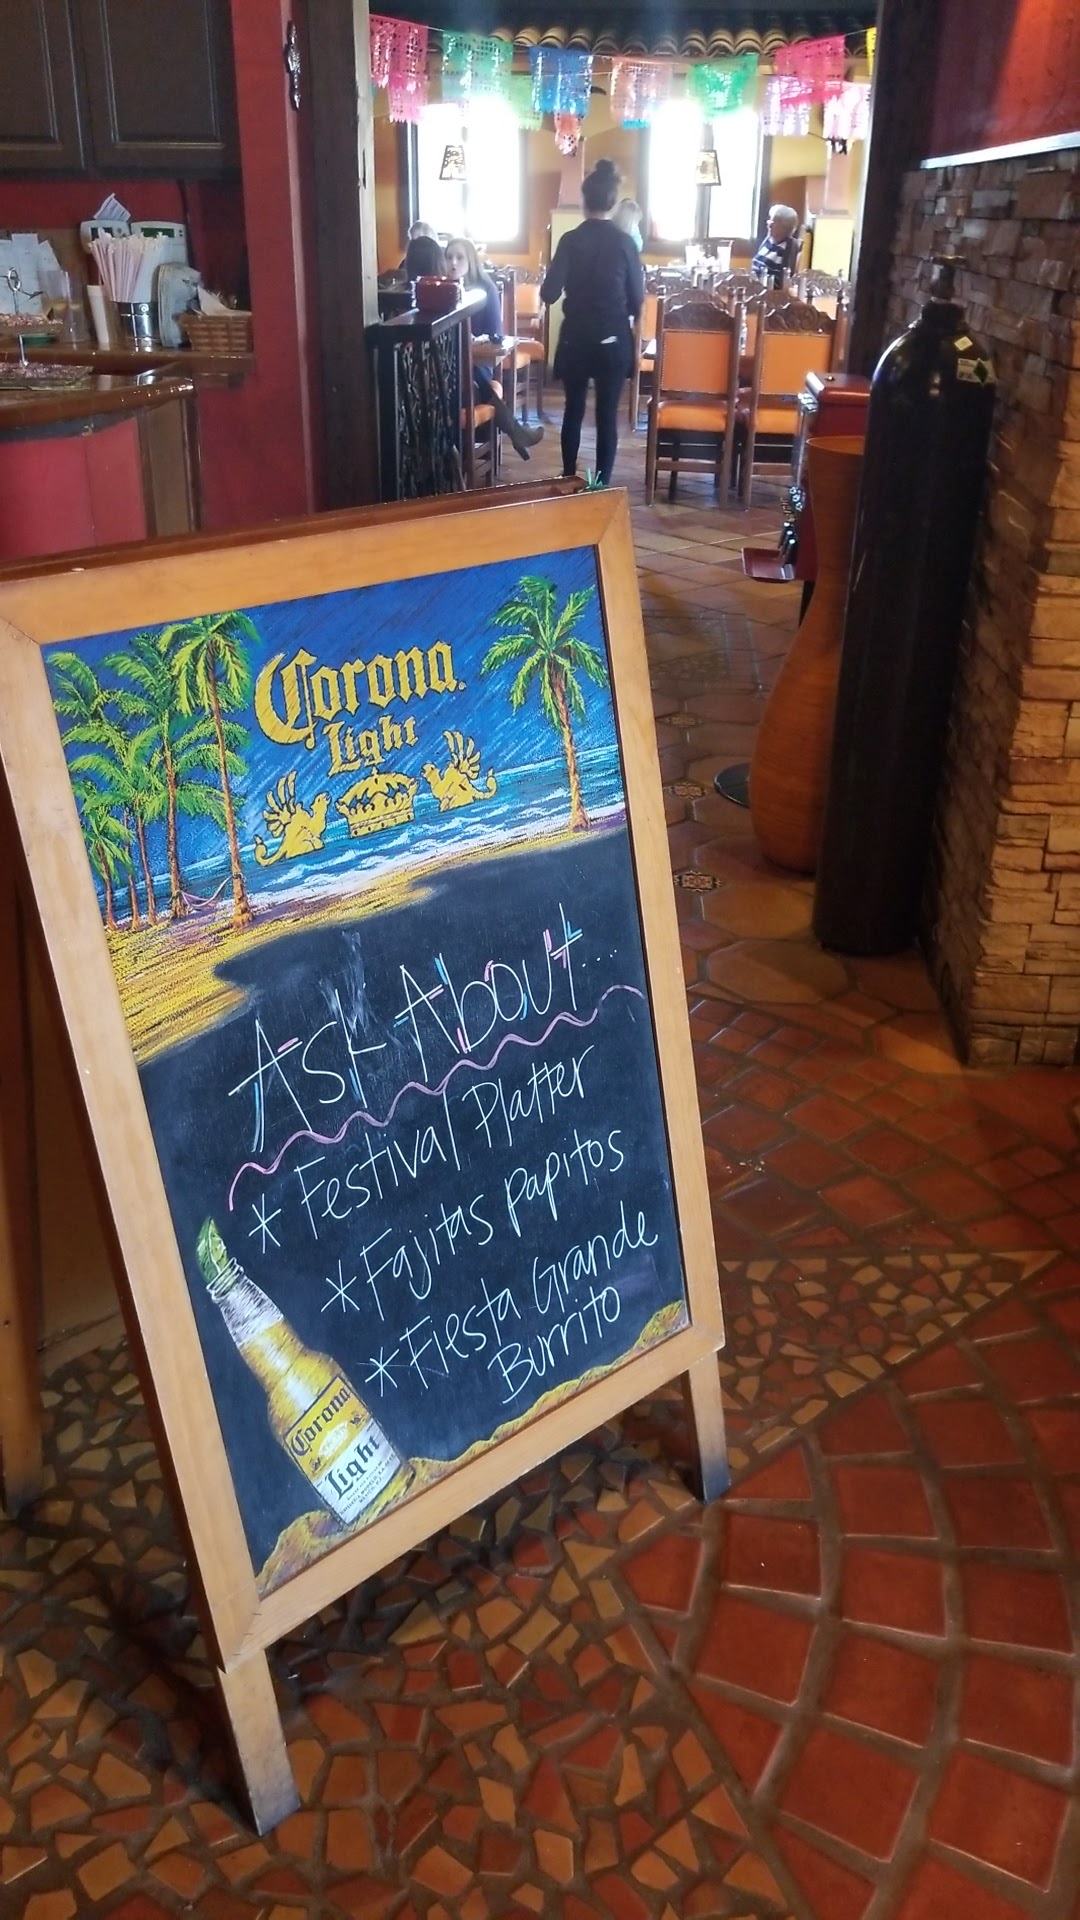 Corona
Light
Ask About....
* Festival Platter
* Fajitas papitos
* Fiesta Grande
Burrito
Corona
Light